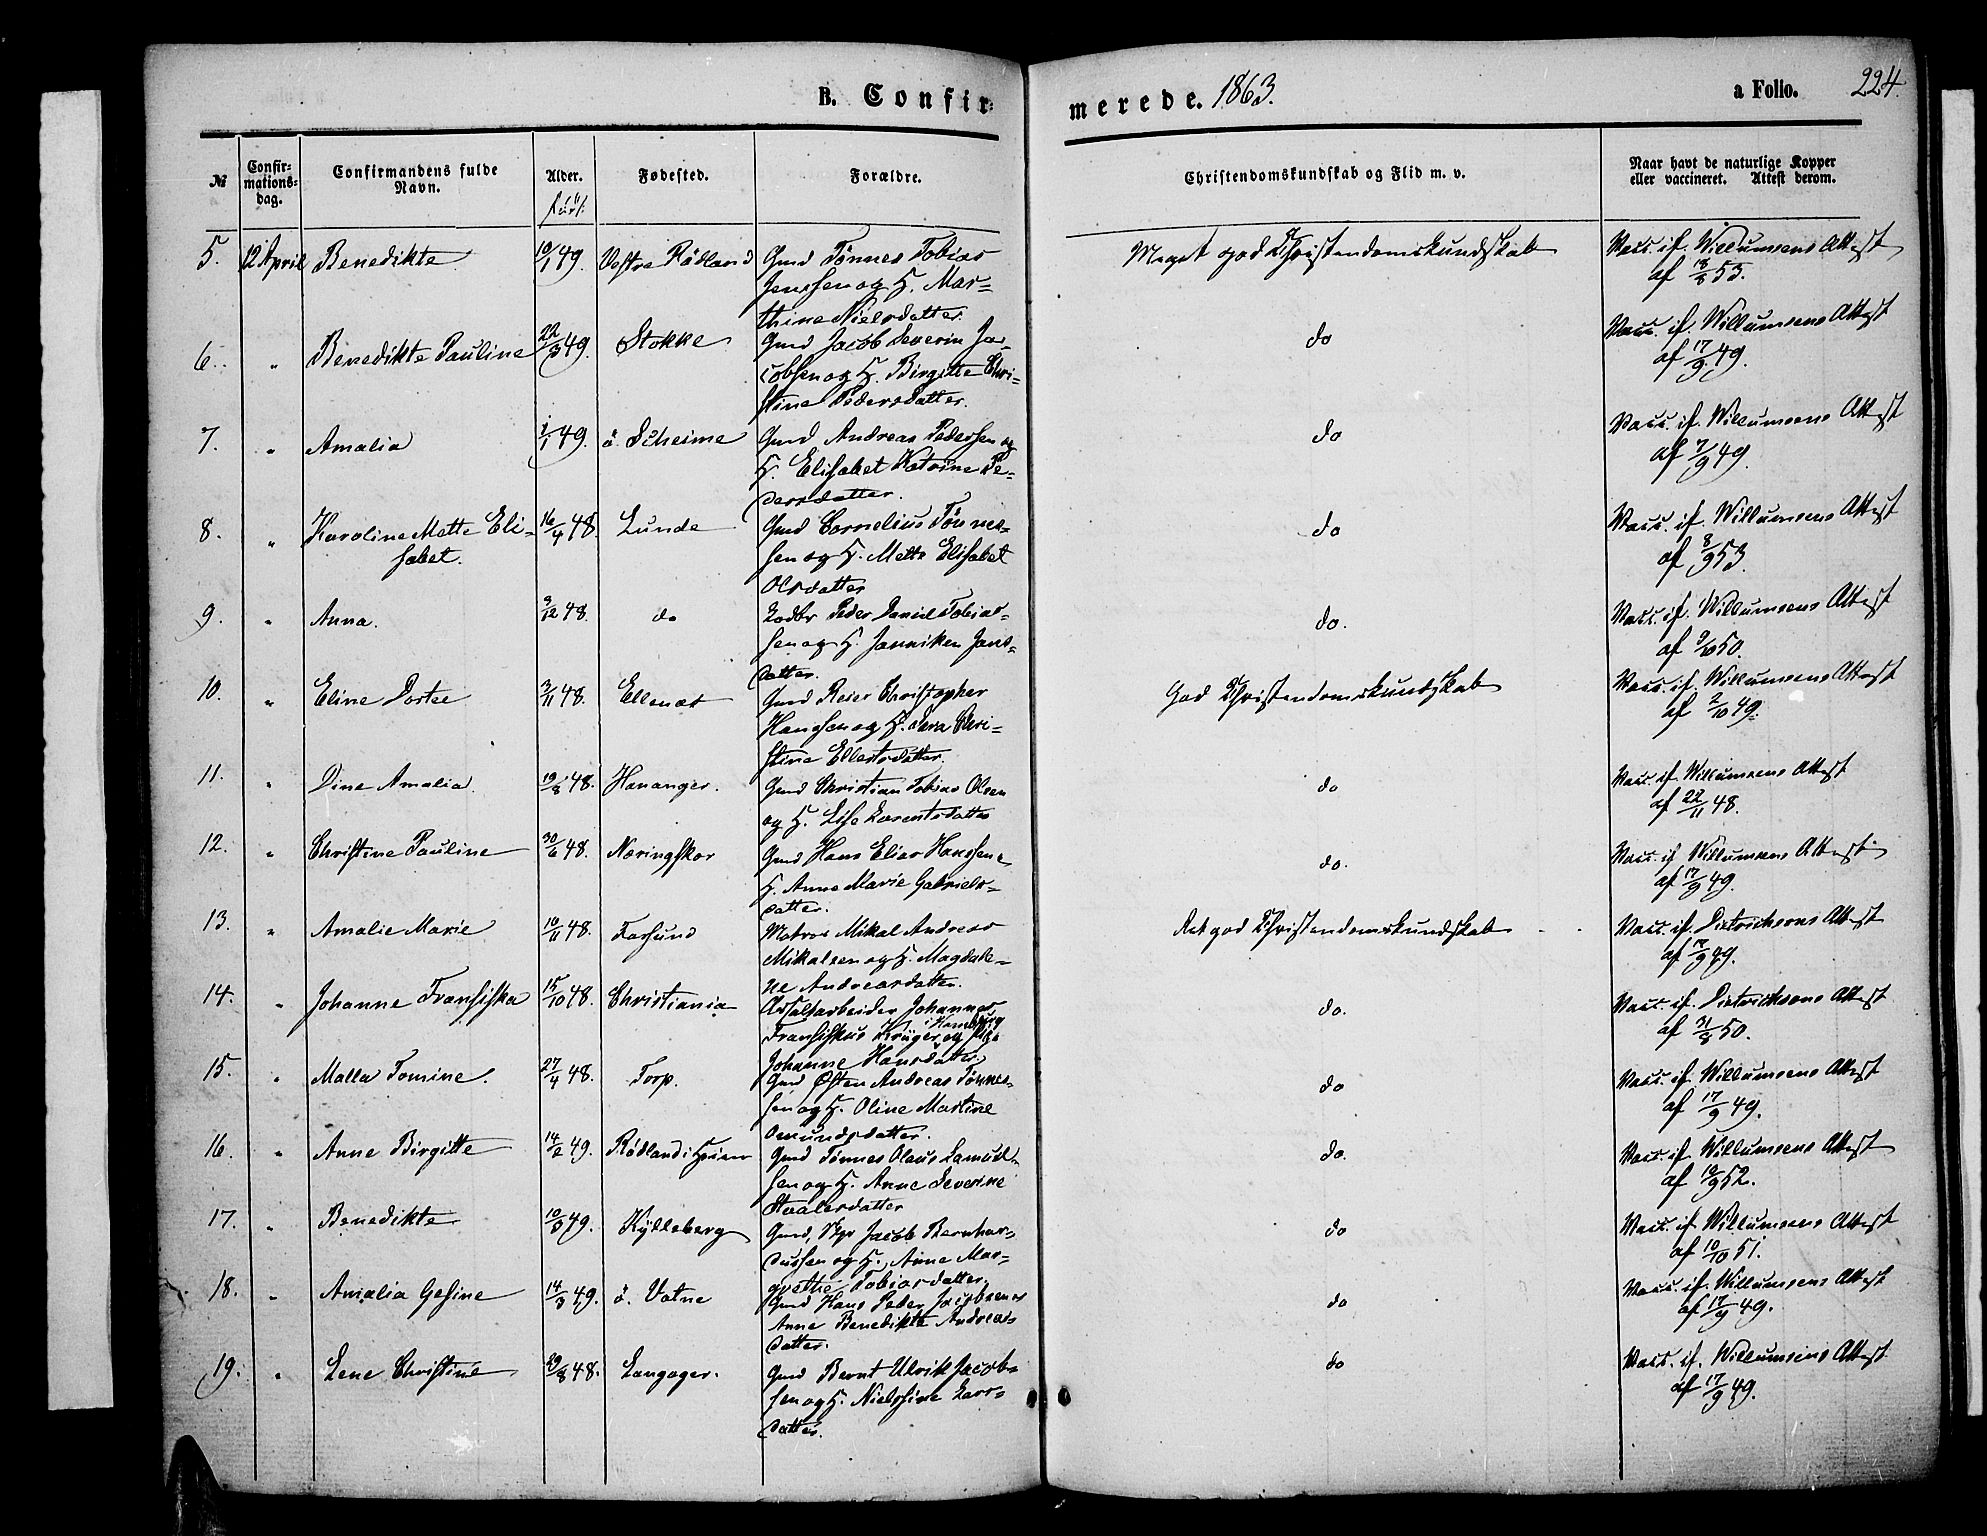 B. Confir-
merede. 1863.
a Folio. 224.
№
Confir-
mations-
dag.
Confirmandens fulde
Navn.
Alder.
Fødested.
Forældre.
Christendomskundskab og Flid m. v.
Naar havt de naturlige Kopper
eller vaccineret. Attest derom.
5. 12 April Benedikte 10/1 49. Vestre Rødland Gmd Tønnes Tobias
Jenssen og H. Mar-
thine Nielsdatter.
Meget god Christendomskundskab
Vacc. if. Willumsens Attest
af 18/8 53.
6. " Benedikte Pauline 22/3 49. Stokke Gmd Jacob Severin Ja-
cobsen og H. Birgitte Chri-
stine Pedersdatter.
do
Vacc. if. Willumsens Attest
af 17/9 49.
7. " Amalia 1/1 49. ö. Scheime Gmd Andreas Pedersen og
H. Elisabet Katrine Pe-
dersdatter.
do
Vacc. if. Willumsens Attest
af 7/9 49.
8. " Karoline Mette Eli-
sabet. 16/4 48. Lunde Gmd Cornelius Tönnes-
sen og H. Mette Elisabet
Olsdatter
do
Vacc. if. Willumsens Attest
af 8/9 53.
9. " Anna. 9/12 48. do Peder Daniel Tobias-
sen og H. Janniken Jans-
datter.
do.
Vacc. if. Willumsens Attest
af 9/10 50.
10. " Eline Dortee 3/11 48. Ellenæs Gmd Reier Christopher
Hanssen og H. Sara Chri-
stine Ellertsdatter.
God Christendomskundskab
Vacc. if. Willumsens Attest
af 2/10 49.
11. " Dine Amalia 19/8 48. Hananger. Gmd Christian Tobias Olsen
og H. Lise Larentsdatter
do
Vacc. if. Willumsens Attest
af 22/11 48.
12. " Christine Pauline 30/6 48. Næringskor Gmd Hans Elias Hanssen
H. Anne Marie Gabriels-
datter.
do.
Vacc. if Willumsens Attest
af 17/9 49.
13. " Amalie Marie 10/11 48. Farsund Matros Mikal Andreas
Mikalsen og H. Magdale-
ne Andreasdatter.
Ret god Christendomskundskab
Vacc. if. Dietrichsons Attest
af 17/9 49.
14. " Johanne Fransiska 15/10 48. Christiania Johannes
Fransiskus Krüger i Hamburg og
Johanne Hansdatter.
do.
Vacc. if. Dietrichsons Attest
af 31/8 50.
15. " Malla Tomine. 27/4 48. Torp. Gmd Østen Andreas Tønnes-
sen og H. Oline Martine
Omundsdatter.
do
Vacc. if. Willumsens Attest
af 17/9 49.
16. " Anne Birgitte 14/2 49. Rødland i Gmd Tønnes Olaus Samuel-
sen og H. Anne Severine
Staalesdatter
do.
Vacc. if. Willumsens Attest
af 10/9 52.
17. " Benedikte 10/3 49. Kylleberg Gmd, Jacob Bernhar-
dussen og H. Anne Mar-
grethe Tobiasdatter.
do
Vacc. if. Willumsens Attest
af 10/10 51.
18. " Amalia Gesine 14/3 49. ö. Vatne Gmd Hans Peder Jacobsen og
Anne Benedikte Andreas-
datter.
do
Vacc. if. Willumsens Attest
af 17/9 49.
19. " Lene Christine 29/8 48. Langager. Gmd Bernt Ulrik Jacob-
sen og H. Nielssine Lars-
datter.
do
Vacc. if. Willumsens Attest
af 17/9 49.